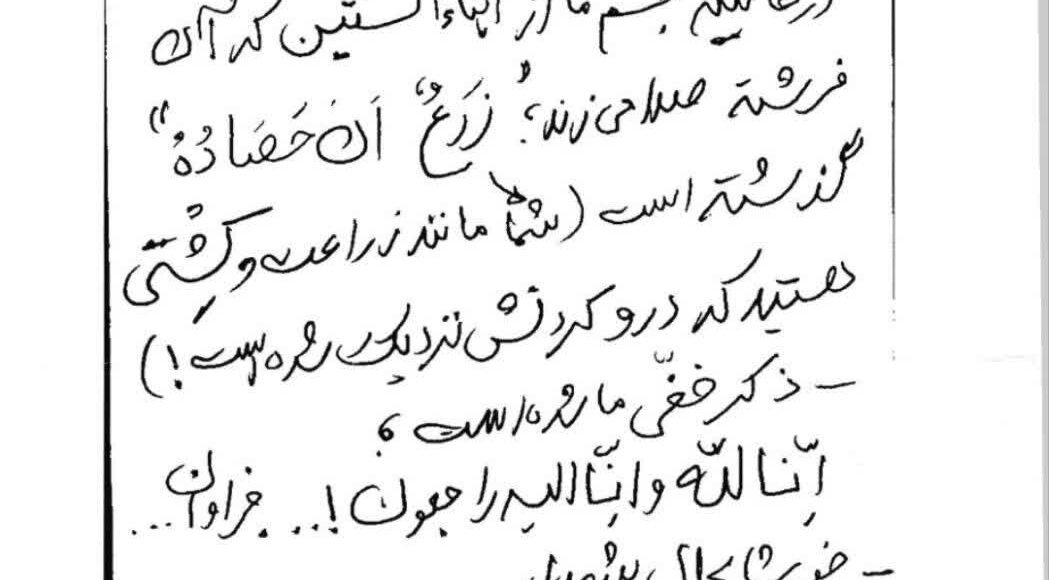 جسم ما از ابناء الستین که آن
فرشته صدا می زند؛ "زَرعٌ اَنَ حَصَادُهُ"
گذشته است (شما مانند زراعت و کِشتی
هستید که درو کردنش نزدیک شده است!)
– ذکر خفیّ ما شده است؛
اِنّا لِلّه و انّا الیه راجعون!... فراوان...
–